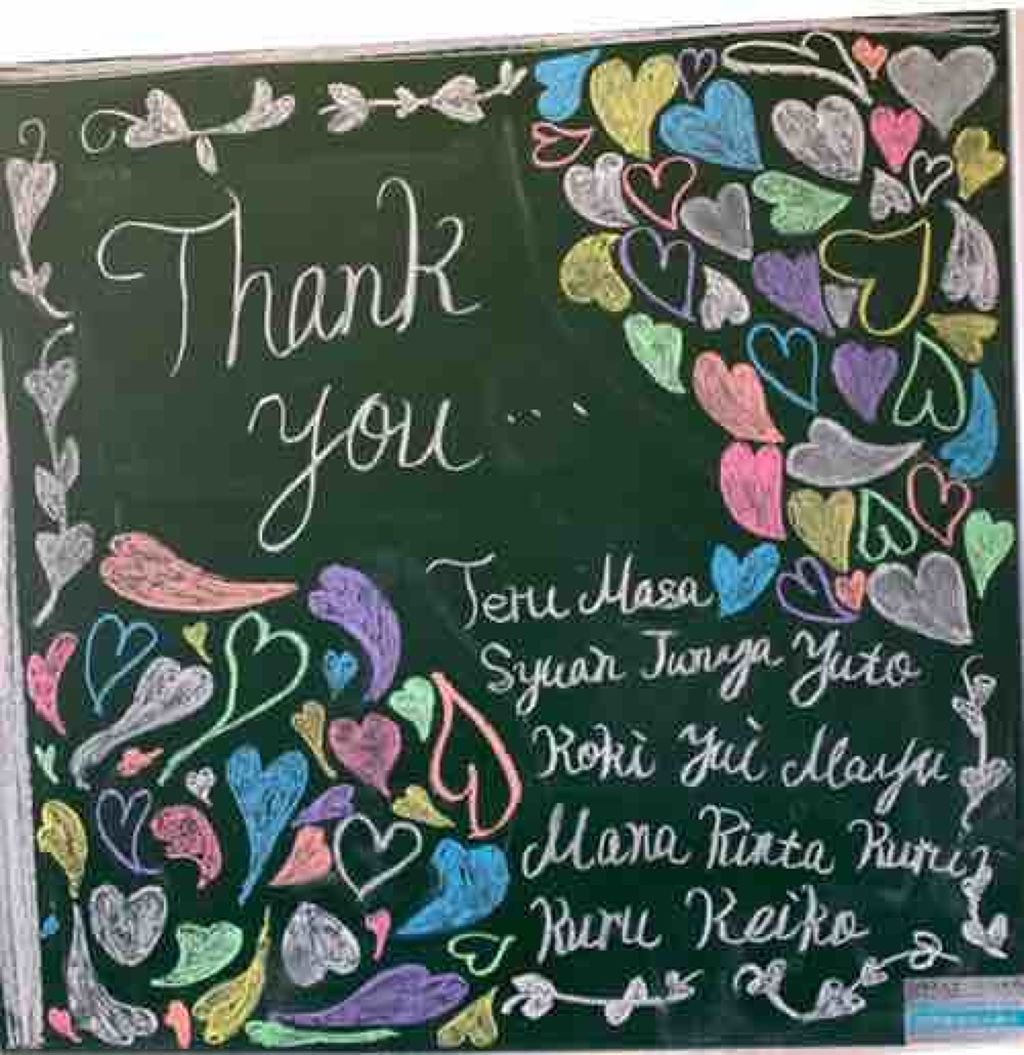 Thank
you...
Teru Masa
Syuan Junya Yuto
Koki Yui Mayu
Mana Rinta Ruru
Ruru Keiko